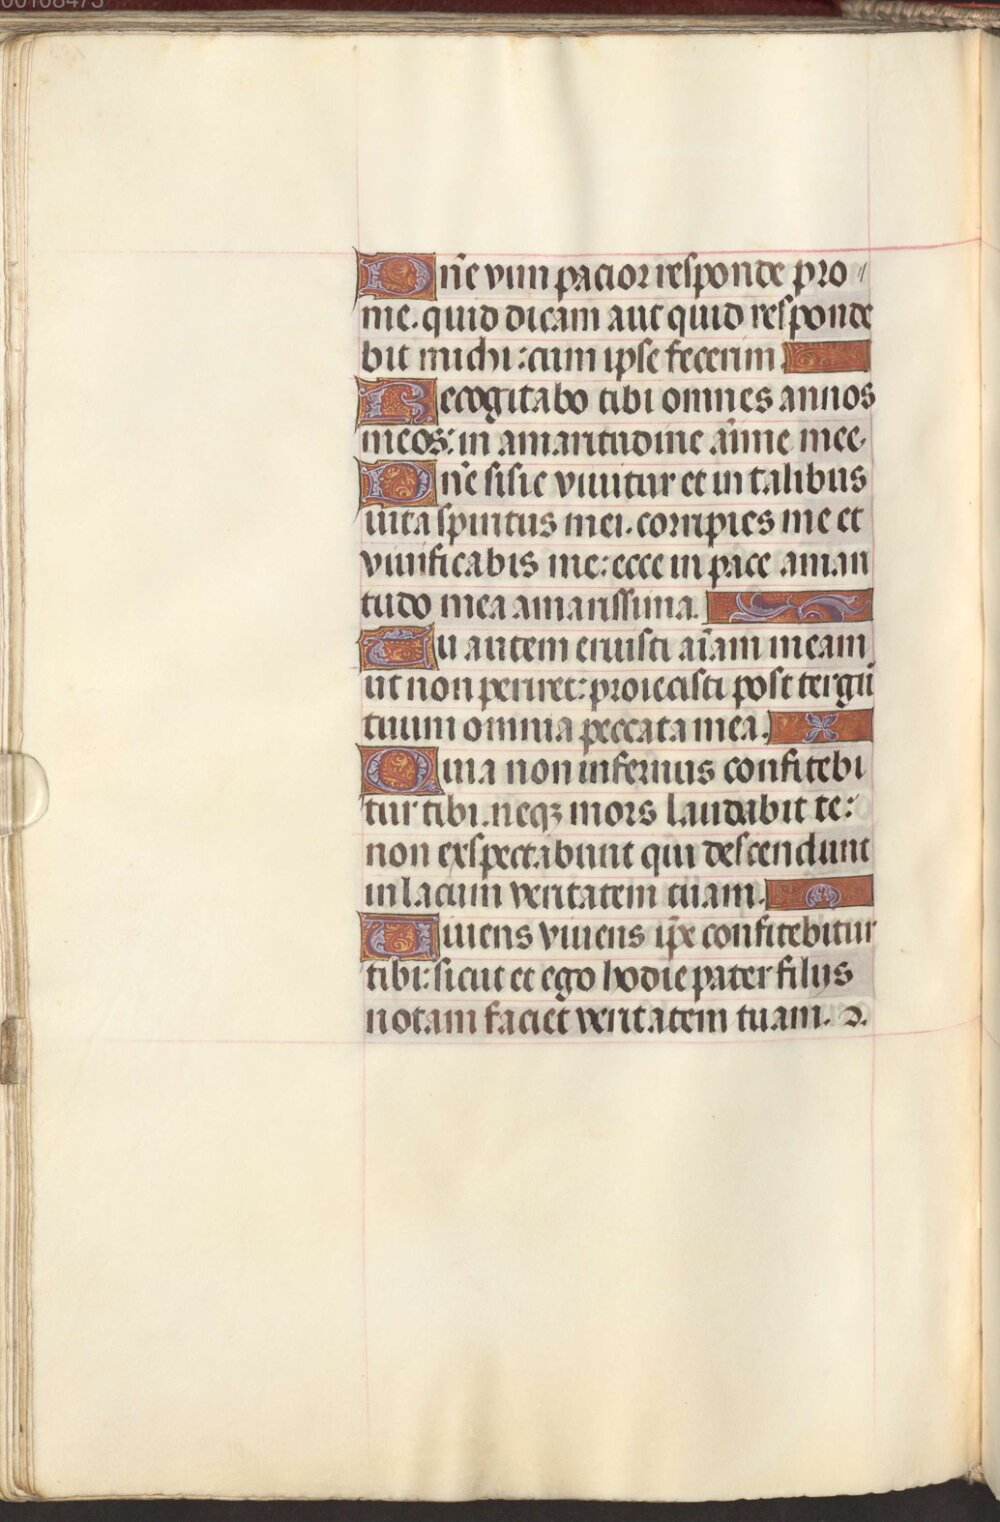 00108473
Dn̄e vim pacior responde pro
me. quid dicam aut quid responde
bit michi: cum ipse fecerim.
Recogitabo tibi omnes annos
meos: in amaritudine aīme mee.
Dn̄e si sic viuitur et in talibus
uita spiritus mei. corripies me et
viuificabis me: ecce in pace amari
tudo mea amarissima.
Tu autem eruisti aīam meam
ut non periret: proiecisti post tergū
tuum omnia peccata mea.
Quia non infernus confitebi
tur tibi. neqꝫ mors laudabit te:
non exspectabunt qui descendunt
in lacum veritatem tuam.
Uiuens viuens ip̄e confitebitur
tibi: sicut et ego hodie pater filijs
notam faciet veritatem tuam. D.